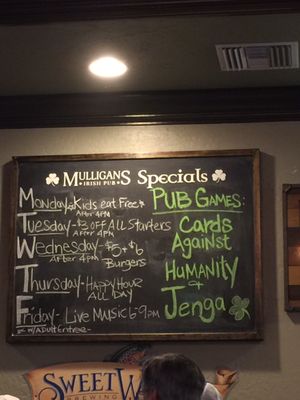 MULLIGANS Specials
IRISH PUB
Monday - Kids eat Free*
After 4PM
Tuesday - $3 OFF ALL Starters
After 4PM
Wednesday - $5 + $6
After 4PM Burgers
Thursday - Happy Hour
ALL DAY
Friday - Live Music 6-9pm
* w/ Adult Entree -
PUB GAMES:
Cards
Against
Humanity
+
Jenga
SWEETW
BREWING